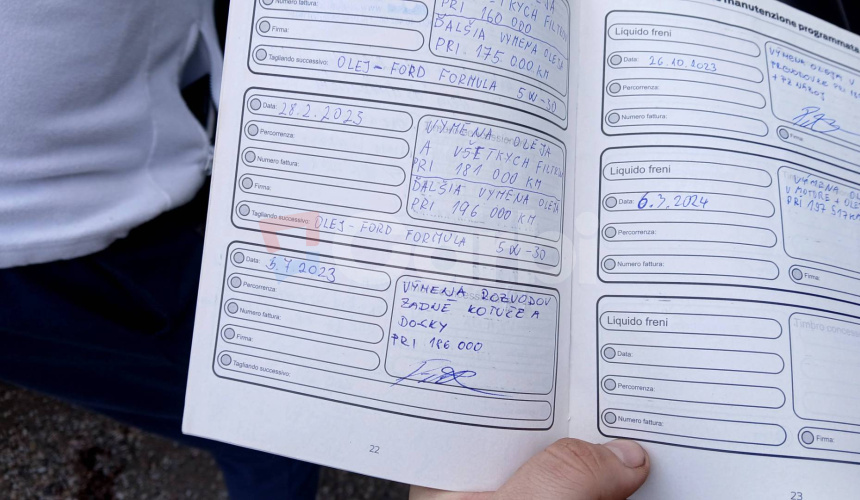 Numero fattura:
Firma:
Tagliando successivo: OLEJ - FORD FORMULA 5W-30
PRI 160 000
ĎALŠIA VÝMENA OLEJA
PRI 175 000 KM
Data: 28.2.2023
Percorrenza:
Numero fattura:
Firma:
Tagliando successivo: OLEJ - FORD FORMULA 5W-30
VÝMENA OLEJA
A VŠETKYCH FILTROV
PRI 181 000 KM
ĎALŠIA VÝMENA OLEJA
PRI 196 000 KM
Data: 5.7 2023
Percorrenza:
Numero fattura:
Firma:
Tagliando successivo:
VÝMENA ROZVODOV
ZADNÉ KOTUČE A
DOSKY
PRI 186 000
22
manutenzione programmata
Liquido freni
Data: 26.10.2023
Percorrenza:
Numero fattura:
VÝMENA OLEJA V
Firma:
Liquido freni
Data: 6.3.2024
Percorrenza:
Numero fattura:
VÝMENA
V MOTORE + OLEJ
Firma:
Liquido freni
Data:
Percorrenza:
Numero fattura:
Firma:
23